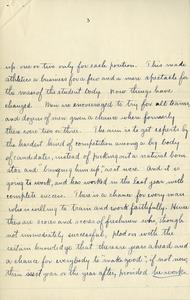 3
up one or two only for each position. This made
athletics a business for a few and a mere spectacle for
the mass of the student body. Now things have
changed. Men are encouraged to try for all teams,
and dozens of men given a chance when formerly
there were two or three. The aim is to get experts by
the hardest kind of competition among a big body
of candidates, instead of picking out a natural born
star and "bringing him up," as it were. And it is
going to work, and has worked in the last year with
complete success. There is a chance for every man
who is willing to train and work faithfully. Hence
there are scores and scores of freshmen who, though
not immediately successful, plod on with the
certain knowledge that there are years ahead and
a chance for everybody to "make good"; if not now,
then next year or the year after, provided he works